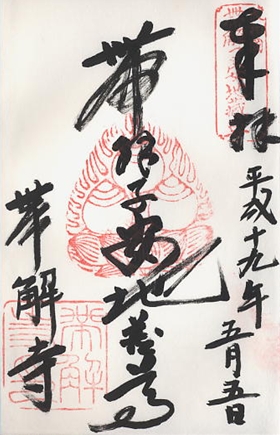 奉拝
平成十九年
五月五日
帯解子安地蔵尊
帯解寺